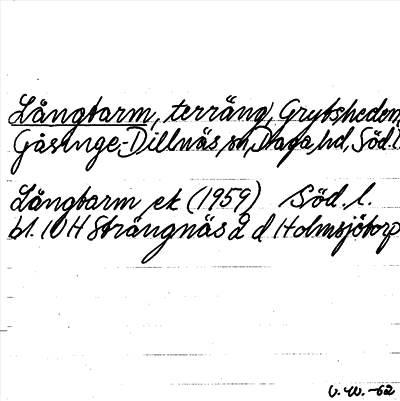 Långtarm, terräng, Grytsheden,
Gåsinge-Dillnäs sn, Daga hd, Söd. l.
Långtarm ek (1959) Söd. l.
bl. 10 H Strängnäs 2 d Holmsjötorp
V.W. -62